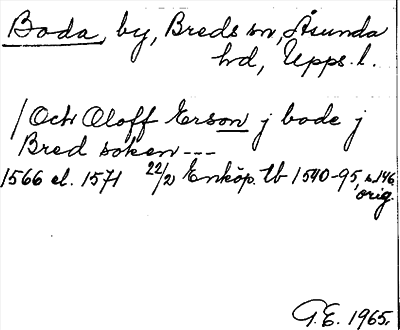 Boda, by, Breds sn, Åsunda
hd, Upps. l.
/ Och Oloff Ersson j bode j
Bred soken ---
1566 el. 1571 22/2 Enköp. tb 1540-95, s. 146
orig.
G.E. 1965.